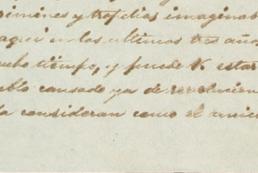 crimenes y tropelias imaginab
aqui en los ultimos tres años
mucho tiempo, y puede V. estar
eblo cansado ya de revolucion
la consideran como el unico